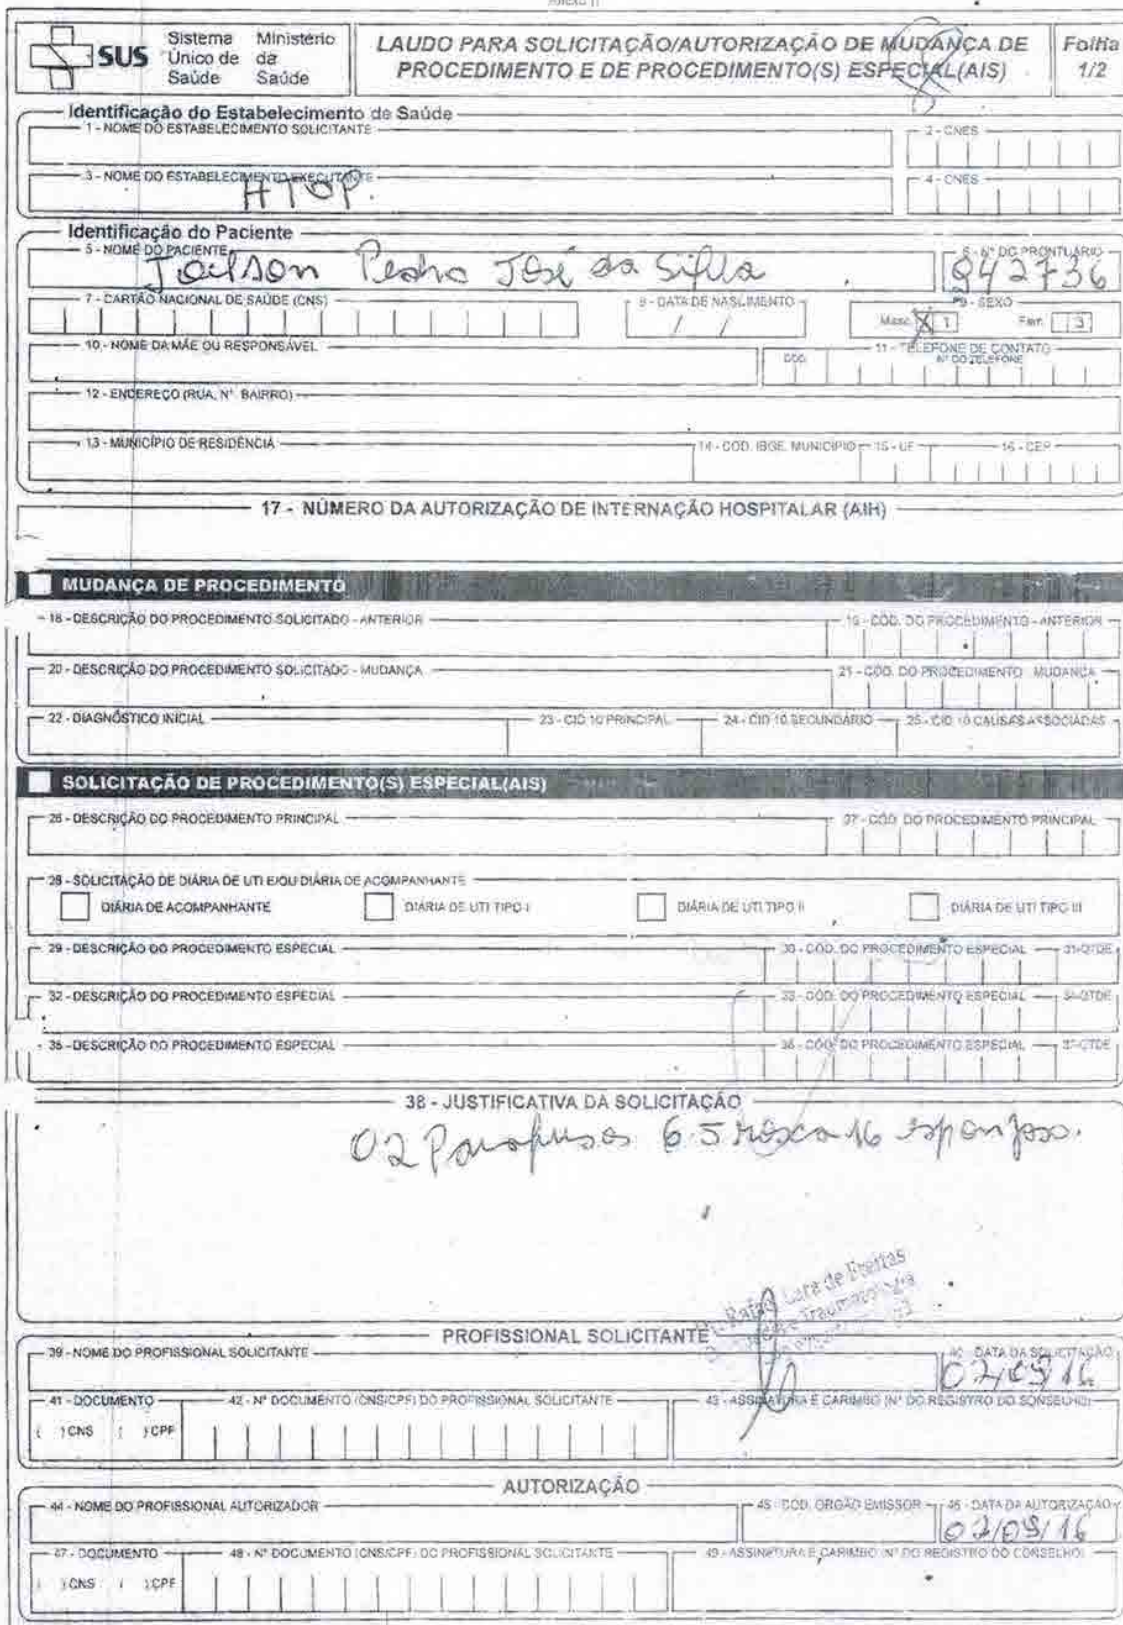 ANEXO II
SUS Sistema Único de Saúde Ministério da Saúde
LAUDO PARA SOLICITAÇÃO/AUTORIZAÇÃO DE MUDANÇA DE PROCEDIMENTO E DE PROCEDIMENTO(S) ESPECIAL(AIS)
Folha 1/2
Identificação do Estabelecimento de Saúde
1 - NOME DO ESTABELECIMENTO SOLICITANTE
2 - CNES
3 - NOME DO ESTABELECIMENTO EXECUTANTE
4 - CNES
HTOP.
Identificação do Paciente
5 - NOME DO PACIENTE
6 - Nº DO PRONTUÁRIO
Joilson Pedro José da Silva
942736
7 - CARTÃO NACIONAL DE SAÚDE (CNS)
8 - DATA DE NASCIMENTO
9 - SEXO
/ /
Masc. X 1 Fem. 3
10 - NOME DA MÃE OU RESPONSÁVEL
11 - TELEFONE DE CONTATO
DDD Nº DO TELEFONE
12 - ENDEREÇO (RUA, Nº BAIRRO)
13 - MUNICÍPIO DE RESIDÊNCIA
14 - COD. IBGE. MUNICÍPIO
15 - UF
16 - CEP
17 - NÚMERO DA AUTORIZAÇÃO DE INTERNAÇÃO HOSPITALAR (AIH)
MUDANÇA DE PROCEDIMENTO
18 - DESCRIÇÃO DO PROCEDIMENTO SOLICITADO - ANTERIOR
19 - CÓD. DO PROCEDIMENTO - ANTERIOR
20 - DESCRIÇÃO DO PROCEDIMENTO SOLICITADO - MUDANÇA
21 - CÓD. DO PROCEDIMENTO MUDANÇA
22 - DIAGNÓSTICO INICIAL
23 - CID 10 PRINCIPAL
24 - CID 10 SECUNDÁRIO
25 - CID 10 CAUSAS ASSOCIADAS
SOLICITAÇÃO DE PROCEDIMENTO(S) ESPECIAL(AIS)
26 - DESCRIÇÃO DO PROCEDIMENTO PRINCIPAL
27 - CÓD. DO PROCEDIMENTO PRINCIPAL
28 - SOLICITAÇÃO DE DIÁRIA DE UTI E/OU DIÁRIA DE ACOMPANHANTE
DIÁRIA DE ACOMPANHANTE
DIÁRIA DE UTI TIPO I
DIÁRIA DE UTI TIPO II
DIÁRIA DE UTI TIPO III
29 - DESCRIÇÃO DO PROCEDIMENTO ESPECIAL
30 - CÓD. DO PROCEDIMENTO ESPECIAL
31-QTDE
32 - DESCRIÇÃO DO PROCEDIMENTO ESPECIAL
33 - CÓD. DO PROCEDIMENTO ESPECIAL
34-QTDE
35 - DESCRIÇÃO DO PROCEDIMENTO ESPECIAL
36 - CÓD. DO PROCEDIMENTO ESPECIAL
37-QTDE
38 - JUSTIFICATIVA DA SOLICITAÇÃO
02 Parafusos 6.5 rosca 16 esponjoso.
Dr. Rafael Lara de Freitas
Traumatologia
PROFISSIONAL SOLICITANTE
39 - NOME DO PROFISSIONAL SOLICITANTE
40 - DATA DA SOLICITAÇÃO
02/09/16
41 - DOCUMENTO
42 - Nº DOCUMENTO (CNS/CPF) DO PROFISSIONAL SOLICITANTE
43 - ASSINATURA E CARIMBO (Nº DO REGISTRO DO CONSELHO)
( ) CNS ( ) CPF
AUTORIZAÇÃO
44 - NOME DO PROFISSIONAL AUTORIZADOR
45 - COD. ORGÃO EMISSOR
46 - DATA DA AUTORIZAÇÃO
02/09/16
47 - DOCUMENTO
48 - Nº DOCUMENTO (CNS/CPF) DO PROFISSIONAL SOLICITANTE
49 - ASSINATURA E CARIMBO (Nº DO REGISTRO DO CONSELHO)
( ) CNS ( ) CPF